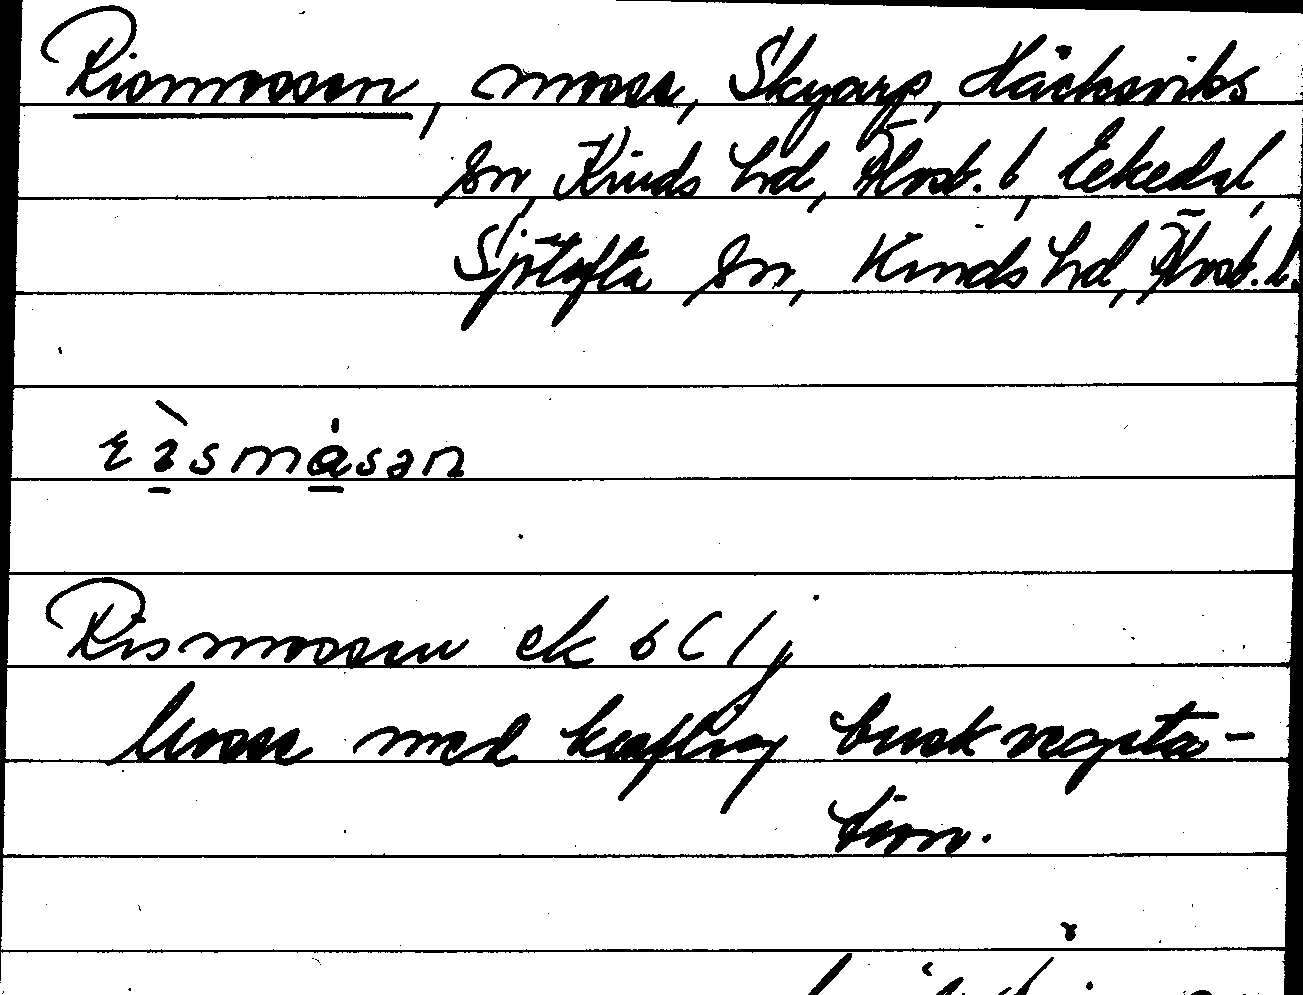 Rismossen, mosse, Skyarp, Håcksviks
sn, Kinds hd, Älvsb. l, Eekedal,
Sjötofta sn, Kinds hd, Älvsb. l.
rìsmåsan
Rismossen ek 6 C 1 j
Mosse med kraftig buskvegeta-
tion.